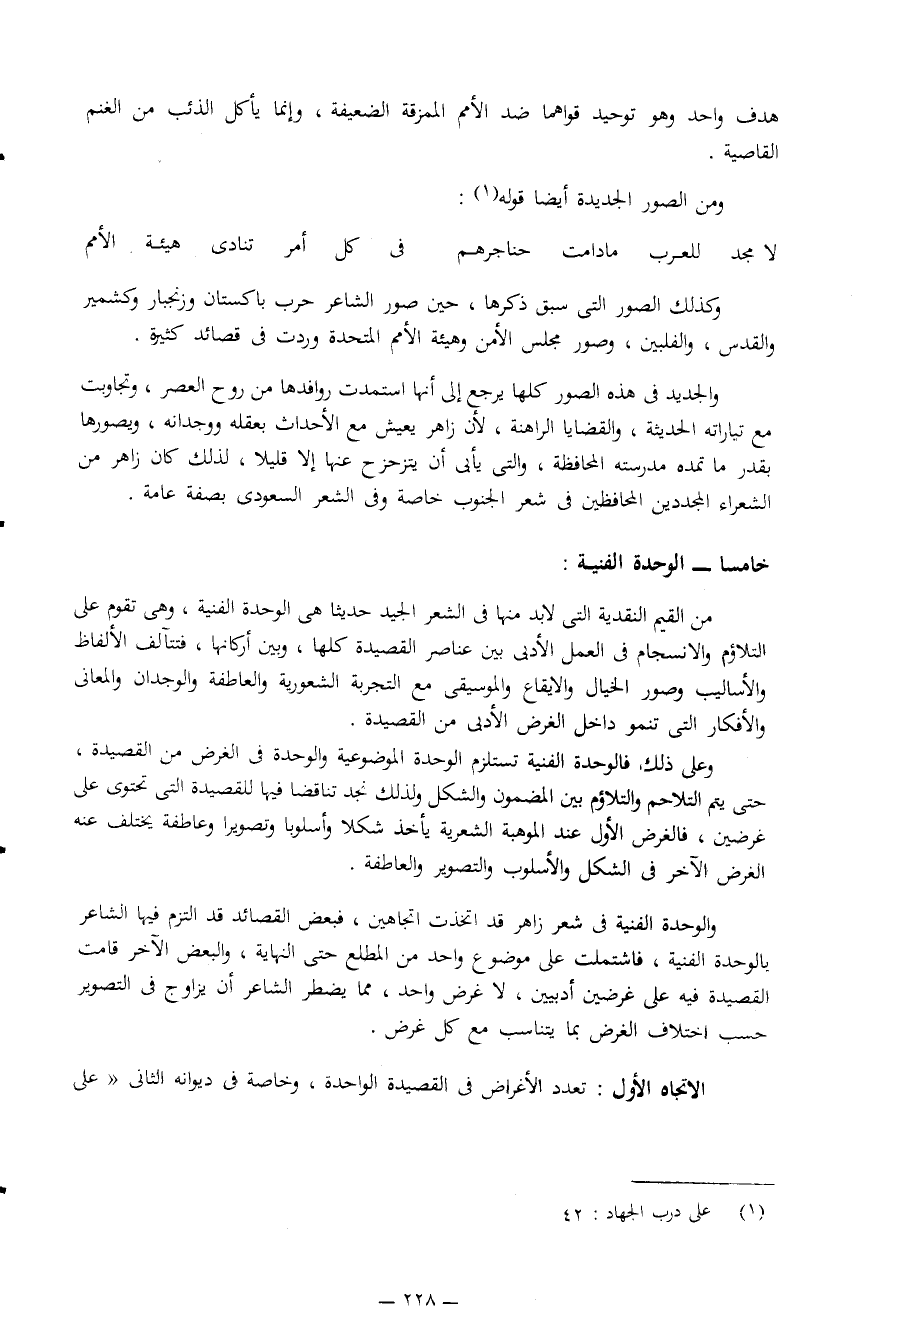 هدف واحد وهو توحيد قواهما ضد الأمم الممزقة الضعيفة ، وإنما يأكل الذئب من الغنم
القاصية .
ومن الصور الجديدة أيضا قوله(١) :
لا مجد للعـرب مادامت حناجرهـم فى كل أمر تنادى هيئـة الأمم
وكذلك الصور التى سبق ذكرها ، حين صور الشاعر حرب باكستان وزنجبار وكشمير
والقدس ، والفلبين ، وصور مجلس الأمن وهيئة الأمم المتحدة وردت فى قصائد كثيرة .
والجديد فى هذه الصور كلها يرجع إلى أنها استمدت روافدها من روح العصر ، وتجاوبت
مع تياراته الحديثة ، والقضايا الراهنة ، لأن زاهر يعيش مع الأحداث بعقله ووجدانه ، ويصورها
بقدر ما تمده مدرسته المحافظة ، والتى يأبى أن يتزحزح عنها إلا قليلا ، لذلك كان زاهر من
الشعراء المجددين المحافظين فى شعر الجنوب خاصة وفى الشعر السعودى بصفة عامة .
خامسا ــ الوحدة الفنيـة :
من القيم النقدية التى لابد منها فى الشعر الجيد حديثا هى الوحدة الفنية ، وهى تقوم على
التلاؤم والانسجام فى العمل الأدبى بين عناصر القصيدة كلها ، وبين أركانها ، فتتآلف الألفاظ
والأساليب وصور الخيال والايقاع والموسيقى مع التجربة الشعورية والعاطفة والوجدان والمعانى
والأفكار التى تنمو داخل الغرض الأدبى من القصيدة .
وعلى ذلك، فالوحدة الفنية تستلزم الوحدة الموضوعية والوحدة فى الغرض من القصيدة ،
حتى يتم التلاحم والتلاؤم بين المضمون والشكل ولذلك نجد تناقضا فيها للقصيدة التى تحتوى على
غرضين ، فالغرض الأول عند الموهبة الشعرية يأخذ شكلا وأسلوبا وتصويرا وعاطفة يختلف عنه
الغرض الآخر فى الشكل والأسلوب والتصوير والعاطفة .
والوحدة الفنية فى شعر زاهر قد اتخذت اتجاهين ، فبعض القصائد قد التزم فيها الشاعر
بالوحدة الفنية ، فاشتملت على موضوع واحد من المطلع حتى النهاية ، والبعض الآخر قامت
القصيدة فيه على غرضين أدبيين ، لا غرض واحد ، مما يضطر الشاعر أن يزاوج فى التصوير
حسب اختلاف الغرض بما يتناسب مع كل غرض .
الاتجاه الأول : تعدد الأغراض فى القصيدة الواحدة ، وخاصة فى ديوانه الثانى « على
(١) على درب الجهاد : ٤٢
ــ ٢٢٨ ــ